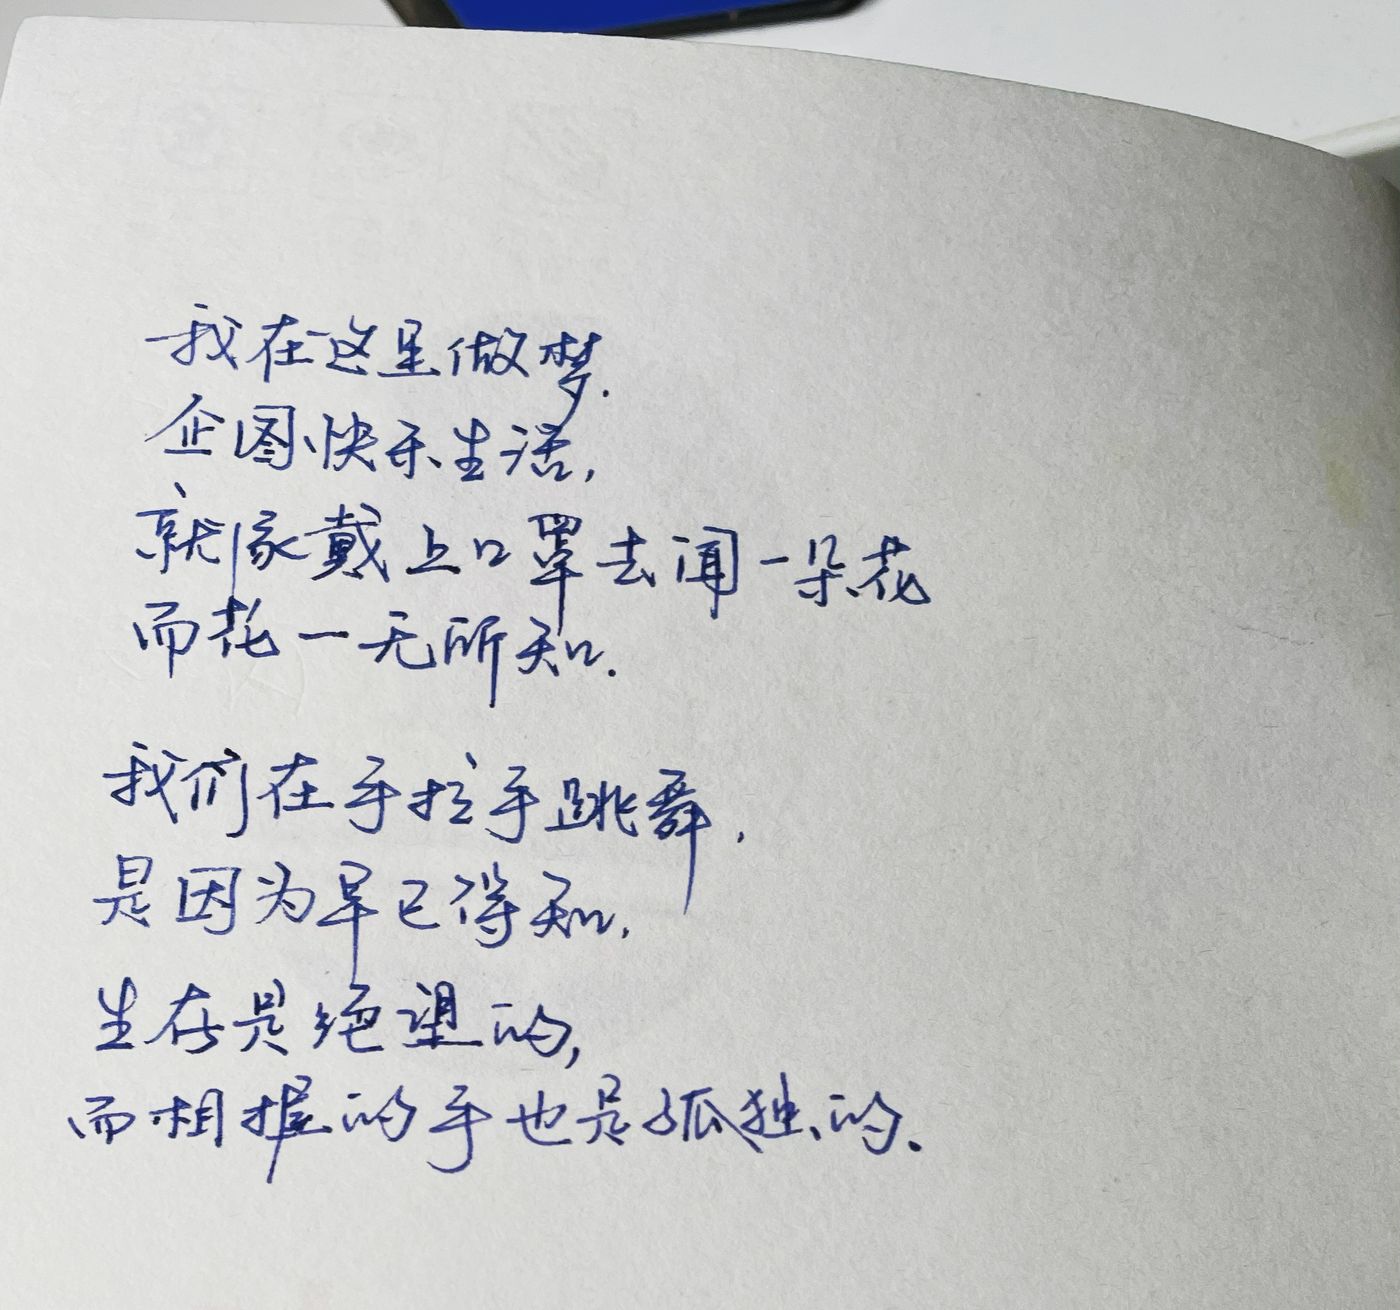 我在这里做梦.
企图快乐生活,
就像戴上口罩去闻一朵花
而花一无所知.
我们在手拉手跳舞,
是因为早已得知,
生存是绝望的,
而相握的手也是孤独的.